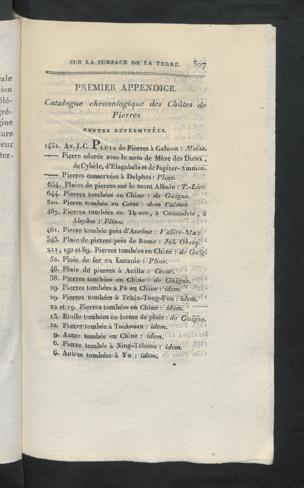 SUR LA SURFACE DE LA TERRE. 307
PREMIER APPENDICE.
Catalogue chronologique des Chûtes de
Pierres
CHUTES DÉTERMINÉES.
1451. Av. J.C. PLUIE de Pierres à Gabaon : Moïse.
—— Pierre adorée sous le nom de Mère des Dieux,
de Cybèle, d'Elagabale et de Jupiter-Ammon.
—— Pierres conservées à Delphes : Pline.
654. Pluies de pierres sur le mont Albain : T.-Live.
644. Pierres tombées en Chine : de Guigne.
520. Pierre tombée en Crète : dom Calmet.
467. Pierres tombées en Thrace, à Cassandrie, à
Abydos : Pline.
461. Pierre tombée près d'Ancône : Valère-Max.
343. Pluie de pierres près de Rome : Jul. Obseq.
211, 192 et 89. Pierres tombées en Chine : de Guig.
52. Pluie de fer en Lucanie : Pline.
46. Pluie de pierres à Acilla : César.
38. Pierres tombées en Chine : de Guigne.
29. Pierres tombées à Pô en Chine : idem.
29. Pierres tombées à Tchin-Tong-Fou : idem.
22 et 19. Pierres tombées en Chine : idem.
15. Etoile tombant en forme de pluie : de Guigne.
12. Pierre tombée à Toukouan : idem.
9. Autre tombée en Chine : idem.
6. Pierre tombée à Ning-Tcheou : idem.
6. Autres tombées à Yu : idem.